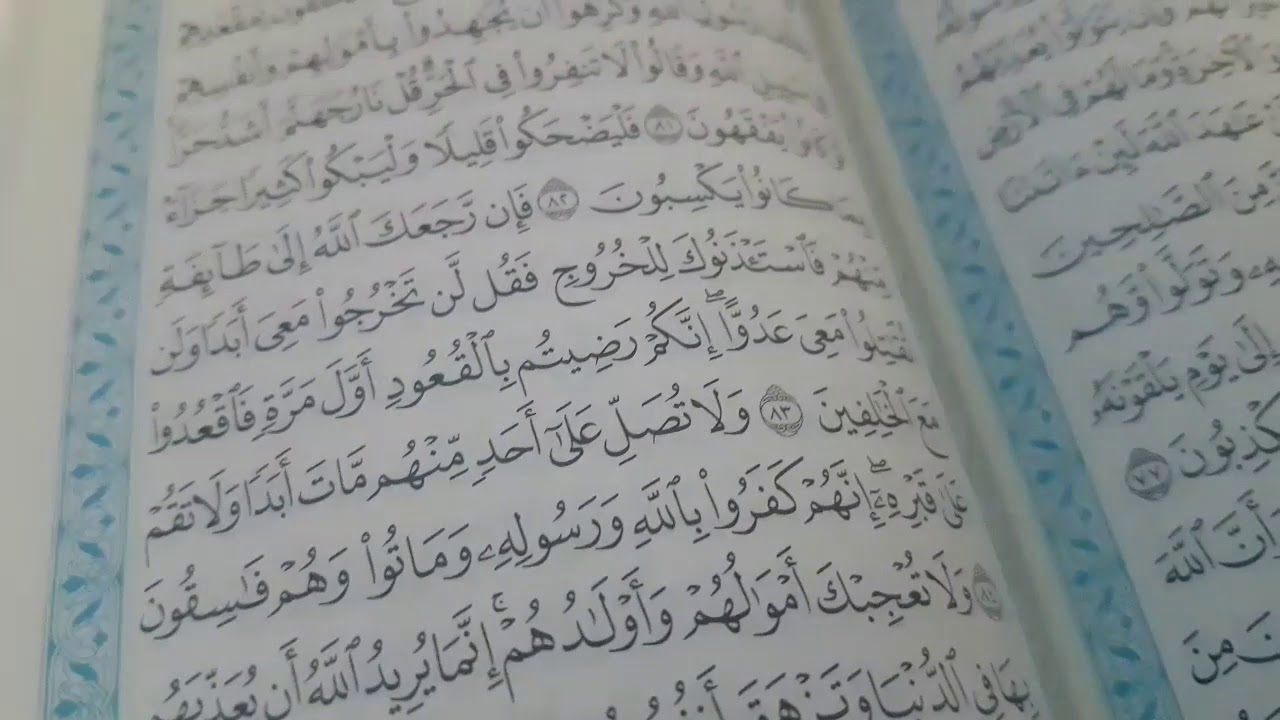 وَلَمِنَ ٱلصَّٰلِحِينَ
وَتَوَلَّوا۟ وَّهُم
إِلَىٰ يَوْمِ يَلْقَوْنَهُۥ
يَكْذِبُونَ ٧٧
وَأَنَّ ٱللَّهَ
مِنَ
ٱللَّهِ وَكَرِهُوٓا۟ أَن يُجَٰهِدُوا۟ بِأَمْوَٰلِهِمْ وَأَنفُسِهِمْ
ٱللَّهِ وَقَالُوا۟ لَا تَنفِرُوا۟ فِى ٱلْحَرِّ قُلْ نَارُ جَهَنَّمَ أَشَدُّ حَرًّا
كَانُوا۟ يَفْقَهُونَ ٨١ فَلْيَضْحَكُوا۟ قَلِيلًا وَلْيَبْكُوا۟ كَثِيرًا جَزَآءًۢ
كَانُوا۟ يَكْسِبُونَ ٨٢ فَإِن رَّجَعَكَ ٱللَّهُ إِلَىٰ طَآئِفَةٍ
مِّنْهُمْ فَٱسْتَـْٔذَنُوكَ لِلْخُرُوجِ فَقُل لَّن تَخْرُجُوا۟ مَعِىَ أَبَدًا وَلَن
تُقَٰتِلُوا۟ مَعِىَ عَدُوًّا ۖ إِنَّكُمْ رَضِيتُم بِٱلْقُعُودِ أَوَّلَ مَرَّةٍ فَٱقْعُدُوا۟
مَعَ ٱلْخَٰلِفِينَ ٨٣ وَلَا تُصَلِّ عَلَىٰٓ أَحَدٍ مِّنْهُم مَّاتَ أَبَدًا وَلَا تَقُمْ
عَلَىٰ قَبْرِهِۦٓ ۖ إِنَّهُمْ كَفَرُوا۟ بِٱللَّهِ وَرَسُولِهِۦ وَمَاتُوا۟ وَهُمْ فَٰسِقُونَ
٨٤ وَلَا تُعْجِبْكَ أَمْوَٰلُهُمْ وَأَوْلَٰدُهُمْ ۚ إِنَّمَا يُرِيدُ ٱللَّهُ أَن يُعَذِّبَهُم
بِهَا فِى ٱلدُّنْيَا وَتَزْهَقَ